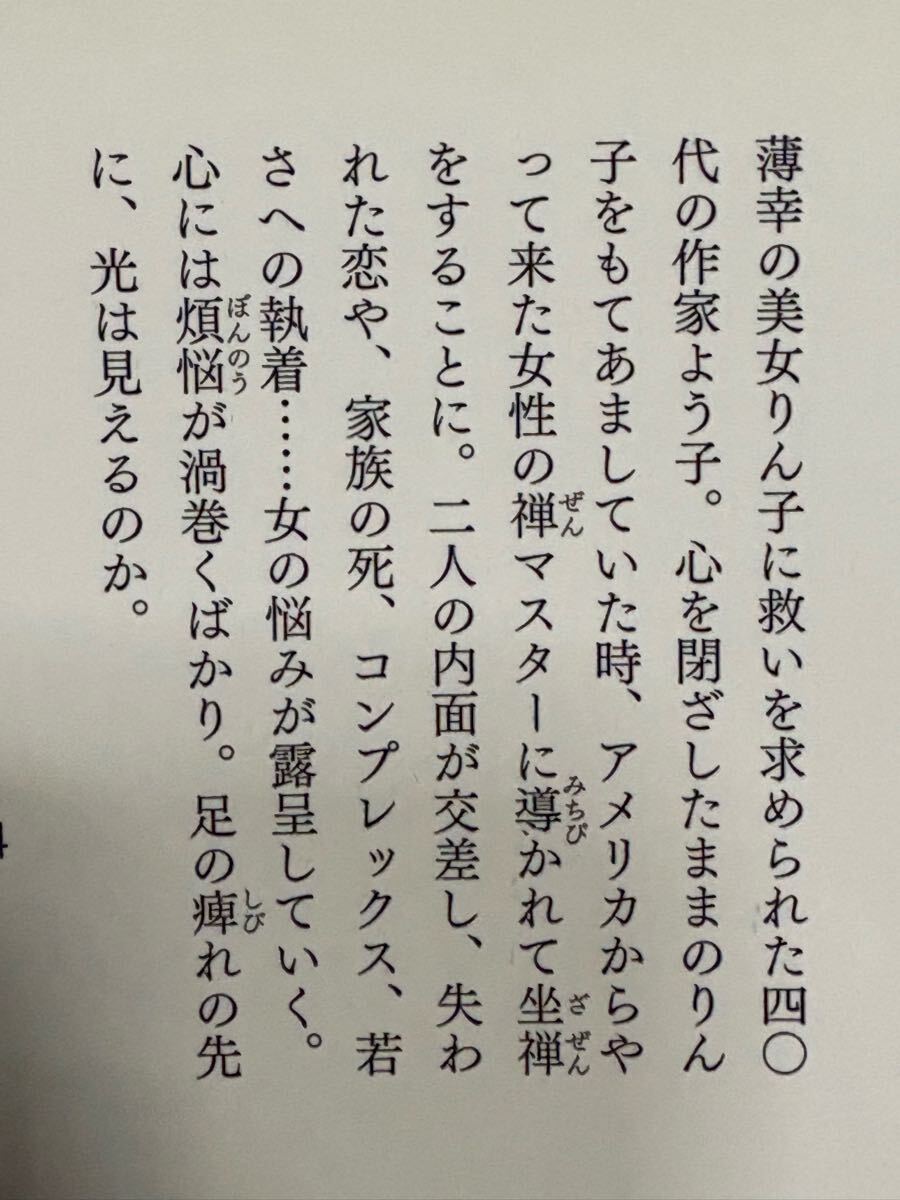 薄幸の美女りん子に救いを求められた四〇
代の作家よう子。心を閉ざしたままのりん
子をもてあましていた時、アメリカからや
って来た女性の禅マスターに導かれて坐禅
をすることに。二人の内面が交差し、失わ
れた恋や、家族の死、コンプレックス、若
さへの執着……女の悩みが露呈していく。
心には煩悩が渦巻くばかり。足の痺れの先
に、光は見えるのか。